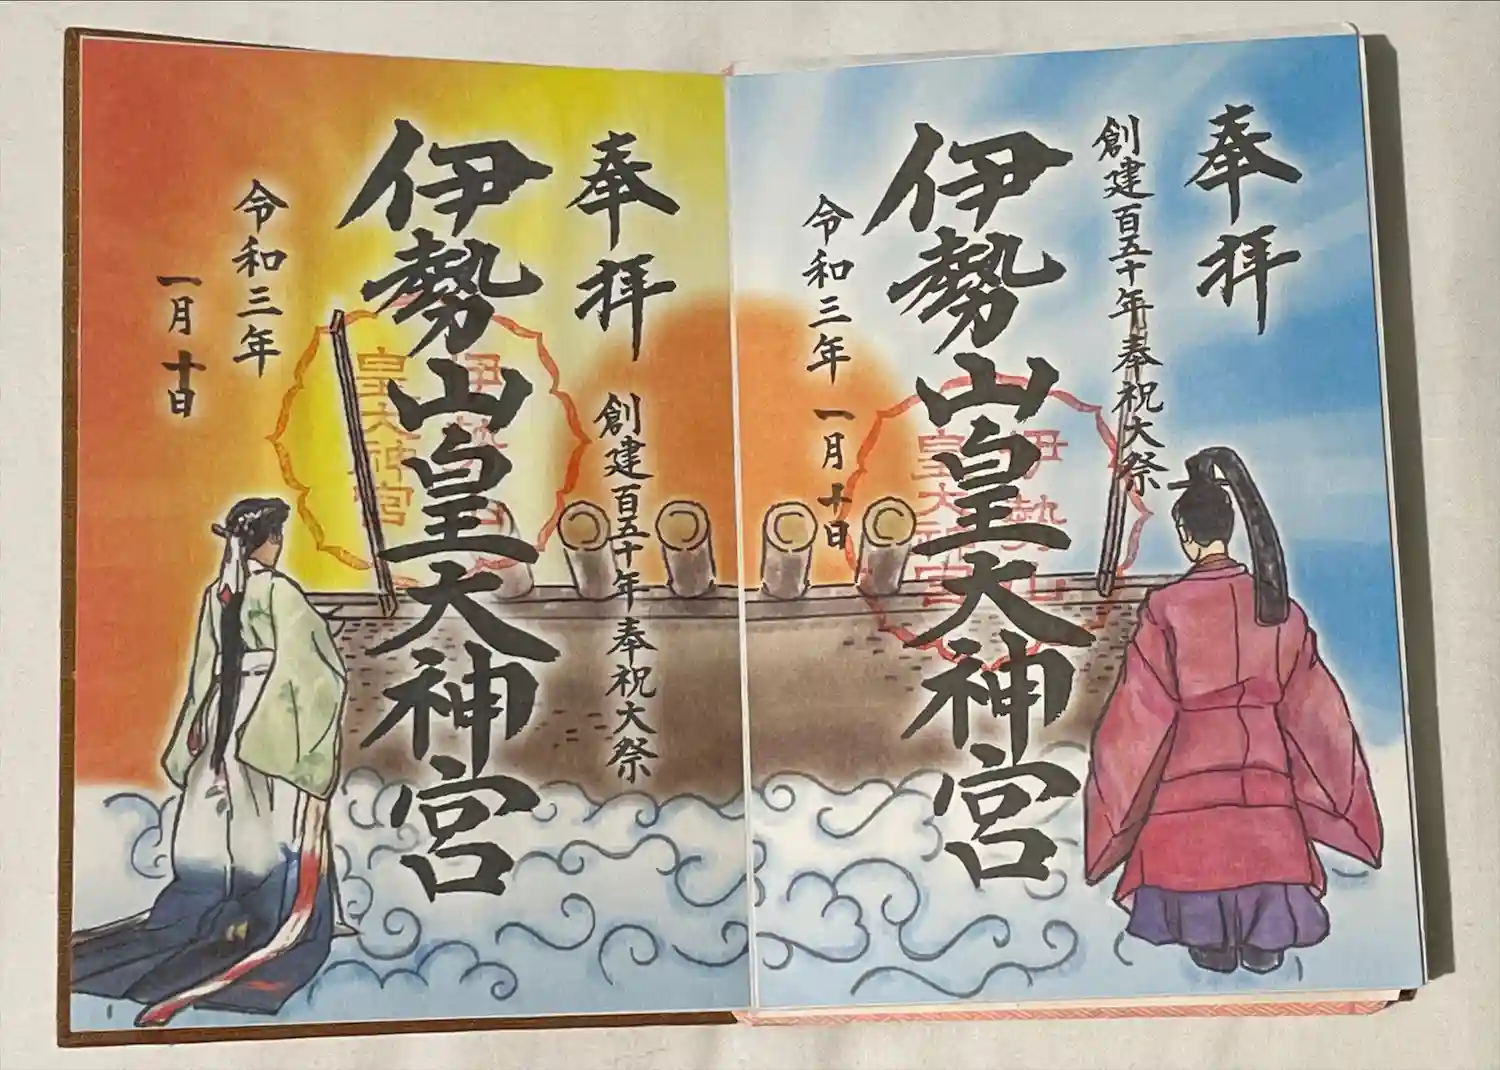 奉拝
創建百五十年奉祝大祭
伊勢山皇大神宮
伊勢山
皇大神宮
令和三年
一月十日
奉拝
創建百五十年奉祝大祭
伊勢山皇大神宮
伊勢山
皇大神宮
令和三年
一月十日